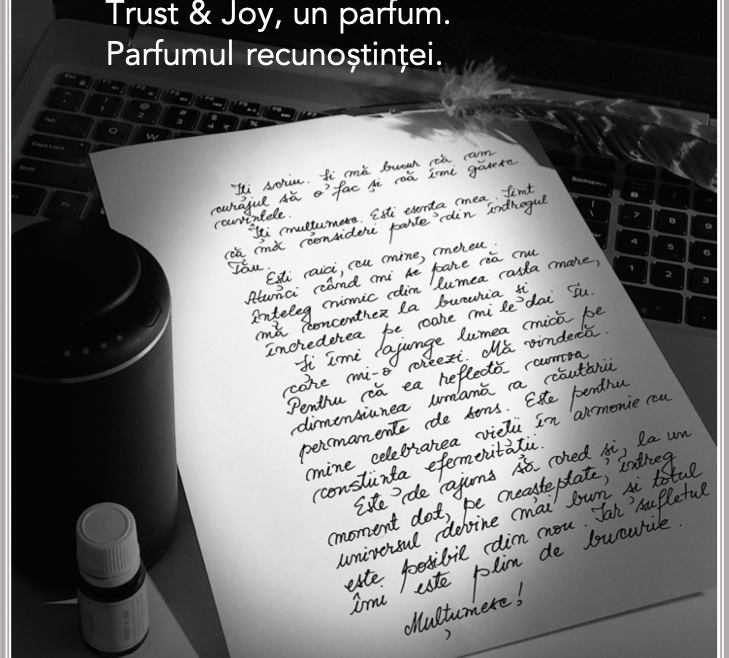 Trust & Joy, un parfum.
Parfumul recunoștinței.
Îți scriu. Și mă bucur că am
curajul să o fac și că îmi găsesc
cuvintele.
Îți mulțumesc. Ești esența mea. Simt
că mă consideri parte din întregul
Tău.
Ești aici, cu mine, mereu.
Atunci când mi se pare că nu
înțeleg nimic din lumea asta mare,
mă concentrez la bucuria și
încrederea pe care mi le dai Tu.
Și îmi ajunge lumea mică pe
care mi-o creezi. Mă vindecă.
Pentru că ea reflectă cumva
dimensiunea umană a căutării
permanente de sens. Este pentru
mine celebrarea vieții în armonie cu
conștiința efemerității.
Este de ajuns să cred și, la un
moment dat, pe neașteptate, întreg
universul devine mai bun și totul
este posibil din nou. Iar sufletul
îmi este plin de bucurie.
Mulțumesc!
TRUST & JOY
Esc
Tab
Caps Lock
Shift
Fn
Q
W
Backspace
7
8
9
4
5
6
1
2
3
0